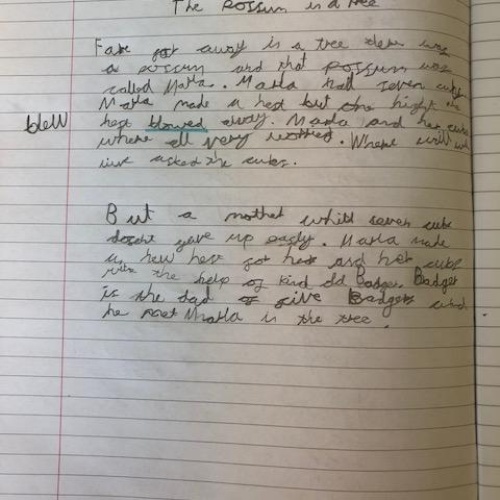 The Possum in a tree
Fare far away in a tree there was
a possum and that possum was
called Marla. Marla had seven cubs.
Marla made a nest but one night the
blew
nest blowed away. Marla and her cubs
where all very worried. Where will we
live asked the cubs.
But a mother whith seven cubs
dosent gave up easly. Marla made
a new nest for her and her cubs
with the help of kind old Badger. Badger
is the dad of five Badgers and
he met Marla in the tree.